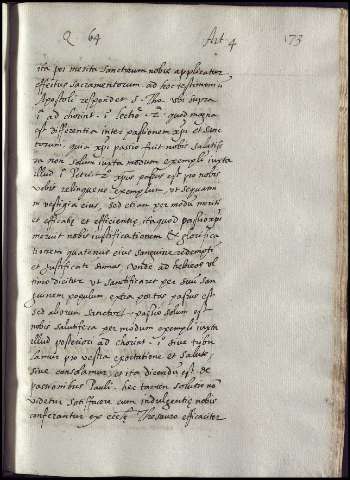 Q 64 Art. 4 173
ita per merita sanctorum nobis applicatur
effectus sacramentorum. ad hoc testimonium
Apostoli respondet S. Tho. ubi supra
1 ad chorint. 1 lectio 2 quod magna
est differentia inter passionem xpi et sanc
torum. quia xpi passio fuit nobis salutife
ra non solum iuxta modum exempli iuxta
illud 1 Petri 2 xpus passus est pro nobis
vobis relinquens exemplum ut sequami
ni vestigia eius, sed etiam per modum meriti
et efficatie et efficientie, itaquod passio xpi
meruit nobis iustificationem et glorifica
tionem quatenus eius sanguine redempti
et justificati sumus. unde ad hebreos ul
timo dicitur ut sanctificaret per suum san
guinem populum extra portas passus est
sed aliorum sanctorum passio solum est
nobis salutifera per modum exempli iuxta
illud posterioris ad chorint. 1 sive tribu
lamur pro vestra exortatione et salute,
sive consolamur, et ita dicendum est de
passionibus Pauli. hec tamen solutio non
videtur satisfacere cum indulgentie nobis
conferantur ex Thesauro efficaciter